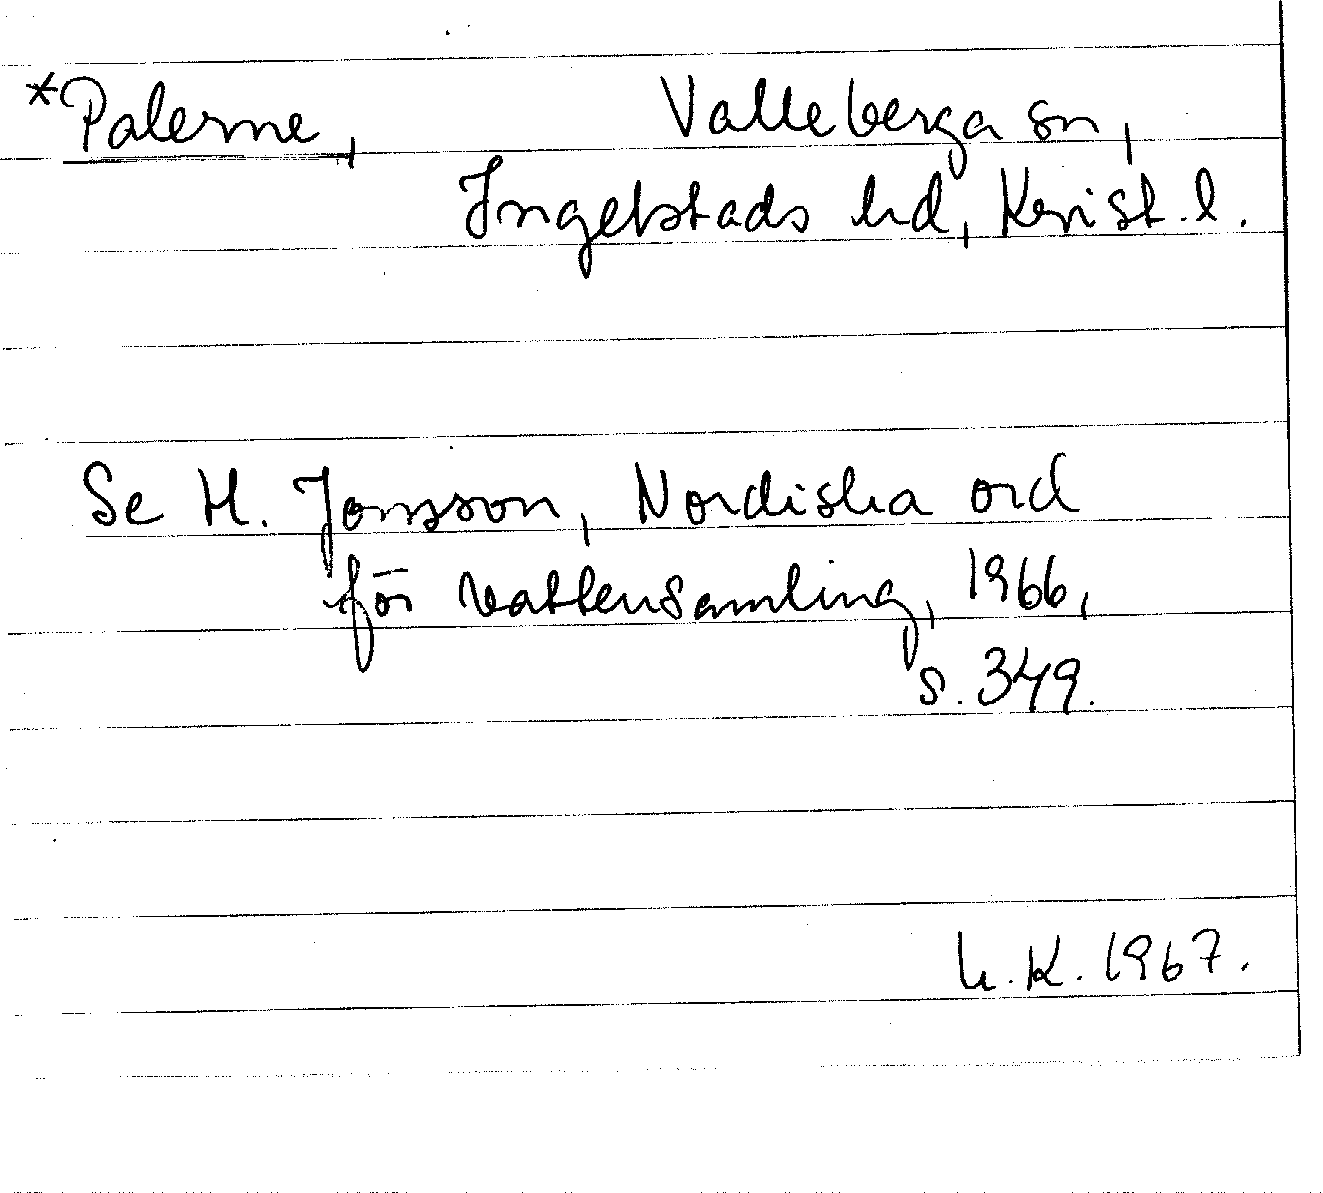 *Palerne, Valleberga sn,
Ingelstads hd, Krist. l.
Se H. Jonsson, Nordiska ord
för vattensamling, 1966,
s. 349.
K. 1967.